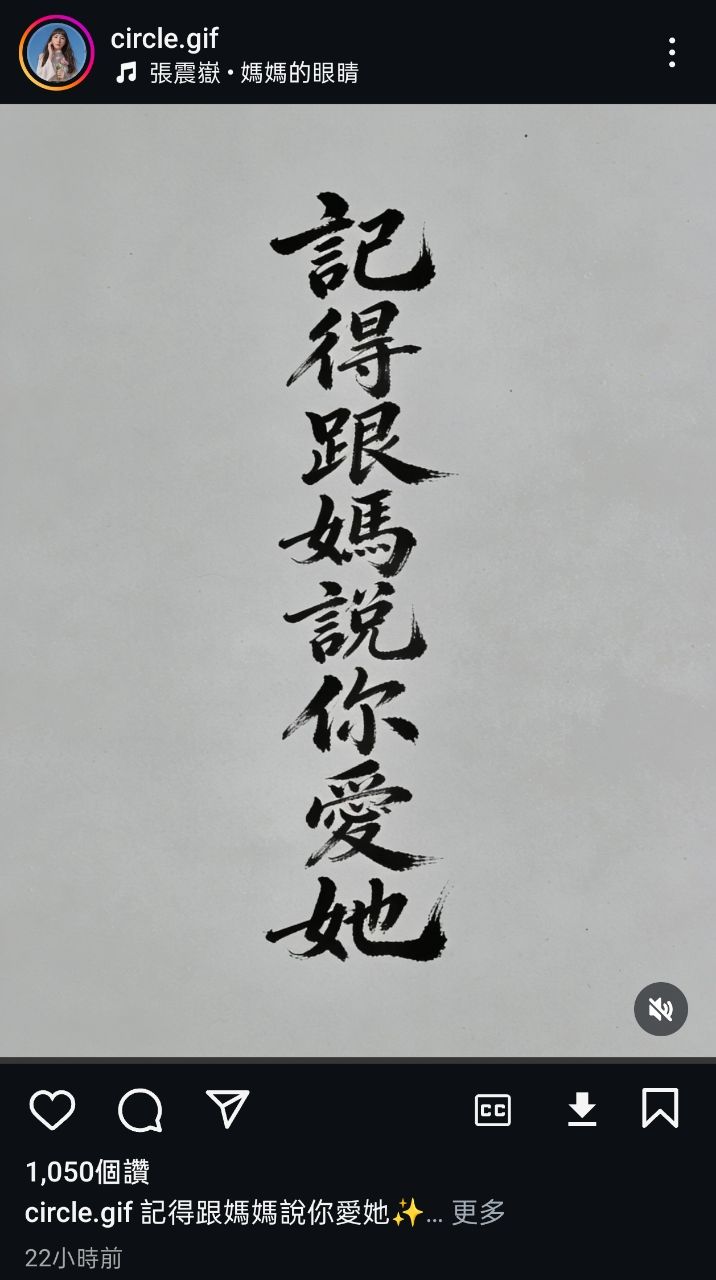 circle.gif
張震嶽•媽媽的眼睛
記得跟媽說你愛她
CC
1,050個讚
circle.gif 記得跟媽媽說你愛她✨... 更多
22小時前